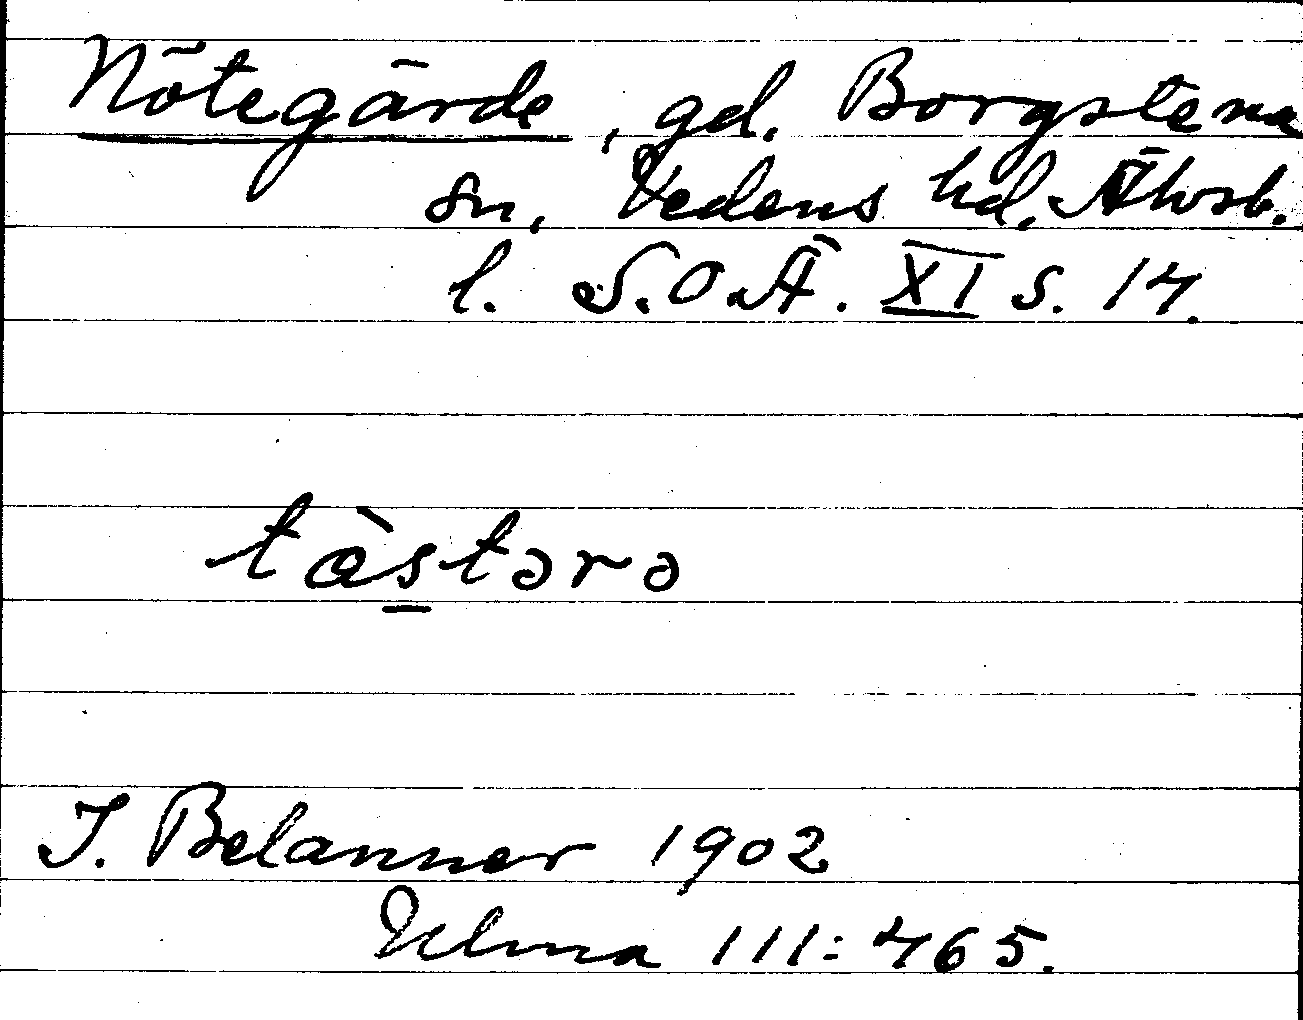 Nötegärde, gd. Borgstena
sn, Vedens hd, Älvsb.
l. S.O.Ä. XI s. 14.
tàstərə
J. Belanner 1902
Ulma 111:465.